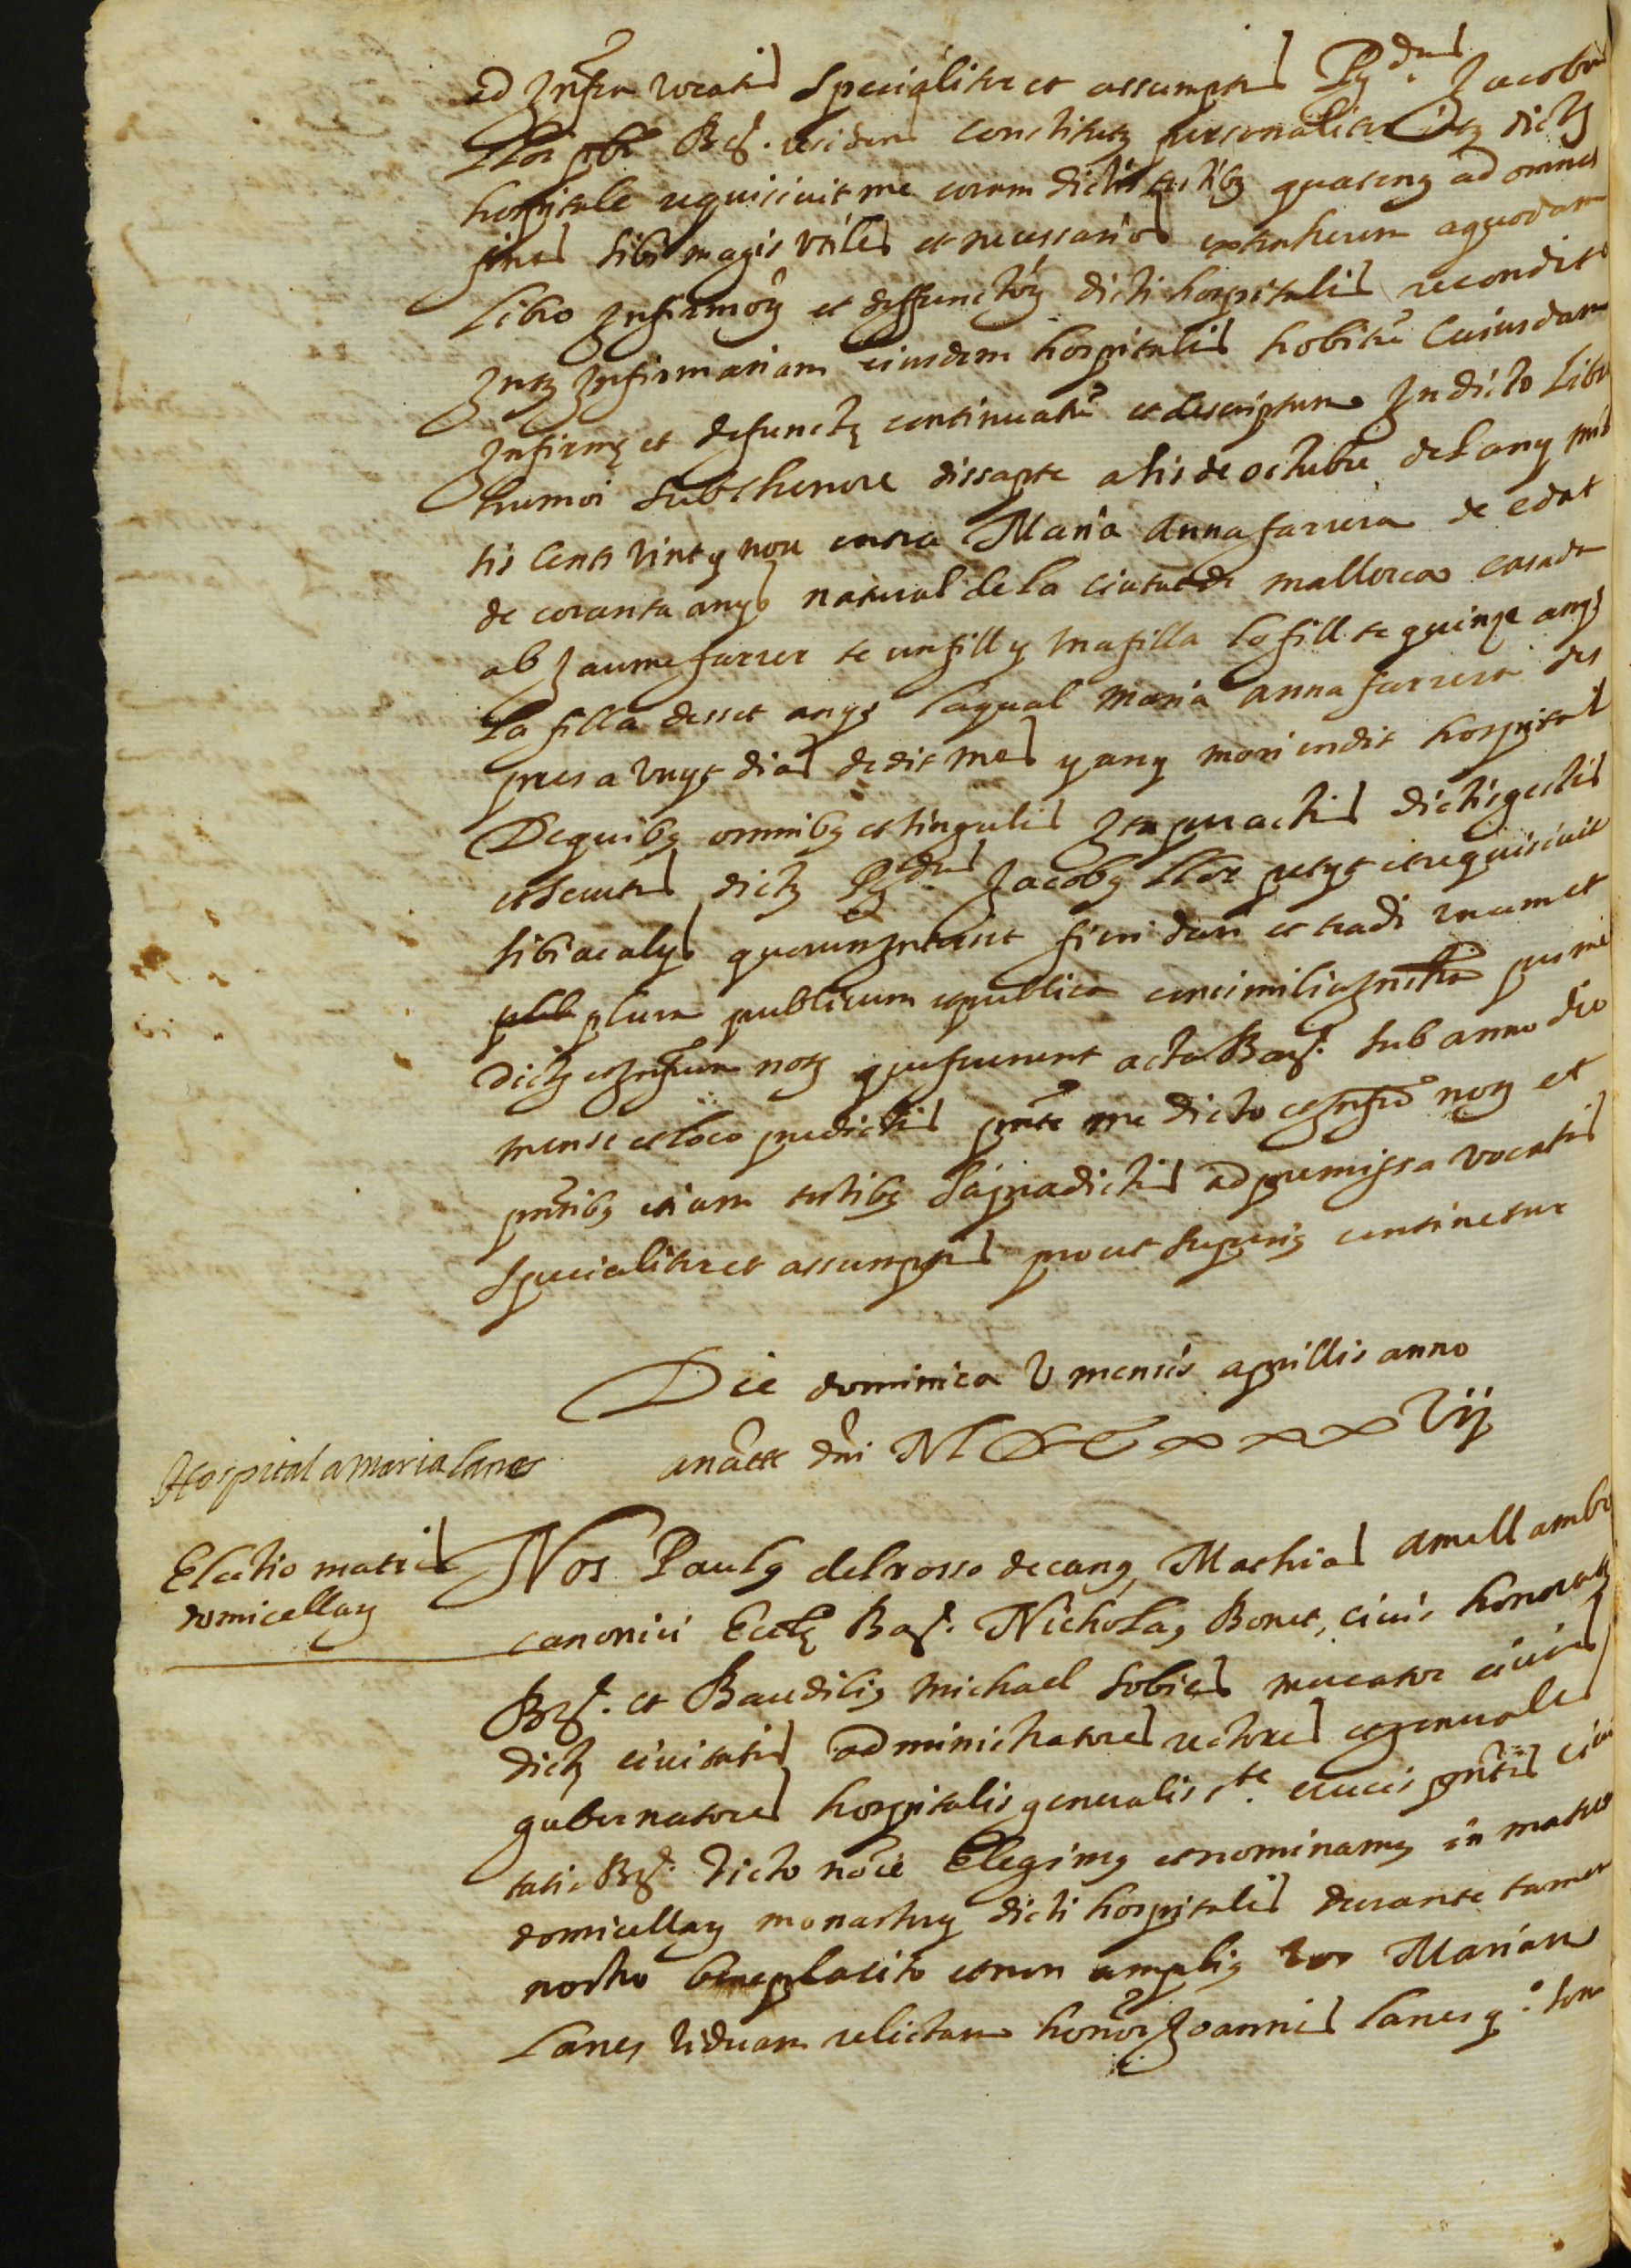 ad Infra vocatis specialiter et assumptis Rdus Jacobus
Llor pbr Barne residens constitutus personaliter Intus dictum
hospitale requisivit me coram dictis testibus quatenus ad omnes
fines sibi magis utiles et necessarios extraherem a quodam
libro Infirmorum et deffunctorum dicti hospitalis recondito
Intus Infirmariam eiusdem hospitalis hobitum Cuiusdam
Infirme et defuncte continuatum et descriptum In dicto libro
humoi sub thenore dissapte a sis de octubre del any mil
sis Cents vint y nou entra Maria Anna farrera de edat
de coranta anys natural de la ciutat de mallorca casada
ab Jaume farrer te un fill y una filla lo fill te quinze anys
la filla desset anys la qual Maria Anna farrera des
pres a vuyt dias de dit mes y any mori en dit hospital
De quibus omnibus et singulis Ita peractis dictis gestis
et secutis dictus Rdus Jacobus Llor petyt et requisivit
sibi ac alys quorum Intersit fieri dari et tradi unum et
plub plura publicum et publica consimilia Instra per me
dictum et Infrum notm que fuerunt acta Barne sub anno die
mense et loco predictis pnte me dicto et Infro noto et
pntibus etiam testibus supradictis ad premissa vocatis
specialiter et assumptis prout superius continetur
Die dominica V mensis aprillis anno
a natte dni M DC xxxVij
Hospital a maria lanes
Electio matris
domicellarum
Nos Paulus del rosso decanus, Mathias Amell ambo
canonici Ecclie Barne Nicholaus Bonet, civis honoratus
Barne et Baudilius Michael Sobies mercator cives
dicte civitatis administratores rectores et generales
gubernatores hospitalis generalis Ste crucis pntis civi
tatis Barne dicto noie Elegimus et nominamus in matrem
domicellarum monastery dicti hospitalis durante tamen
nostro beneplacito et non amplius vos Mariam
Lanes viduam relictam honor Joannis Lanes qo